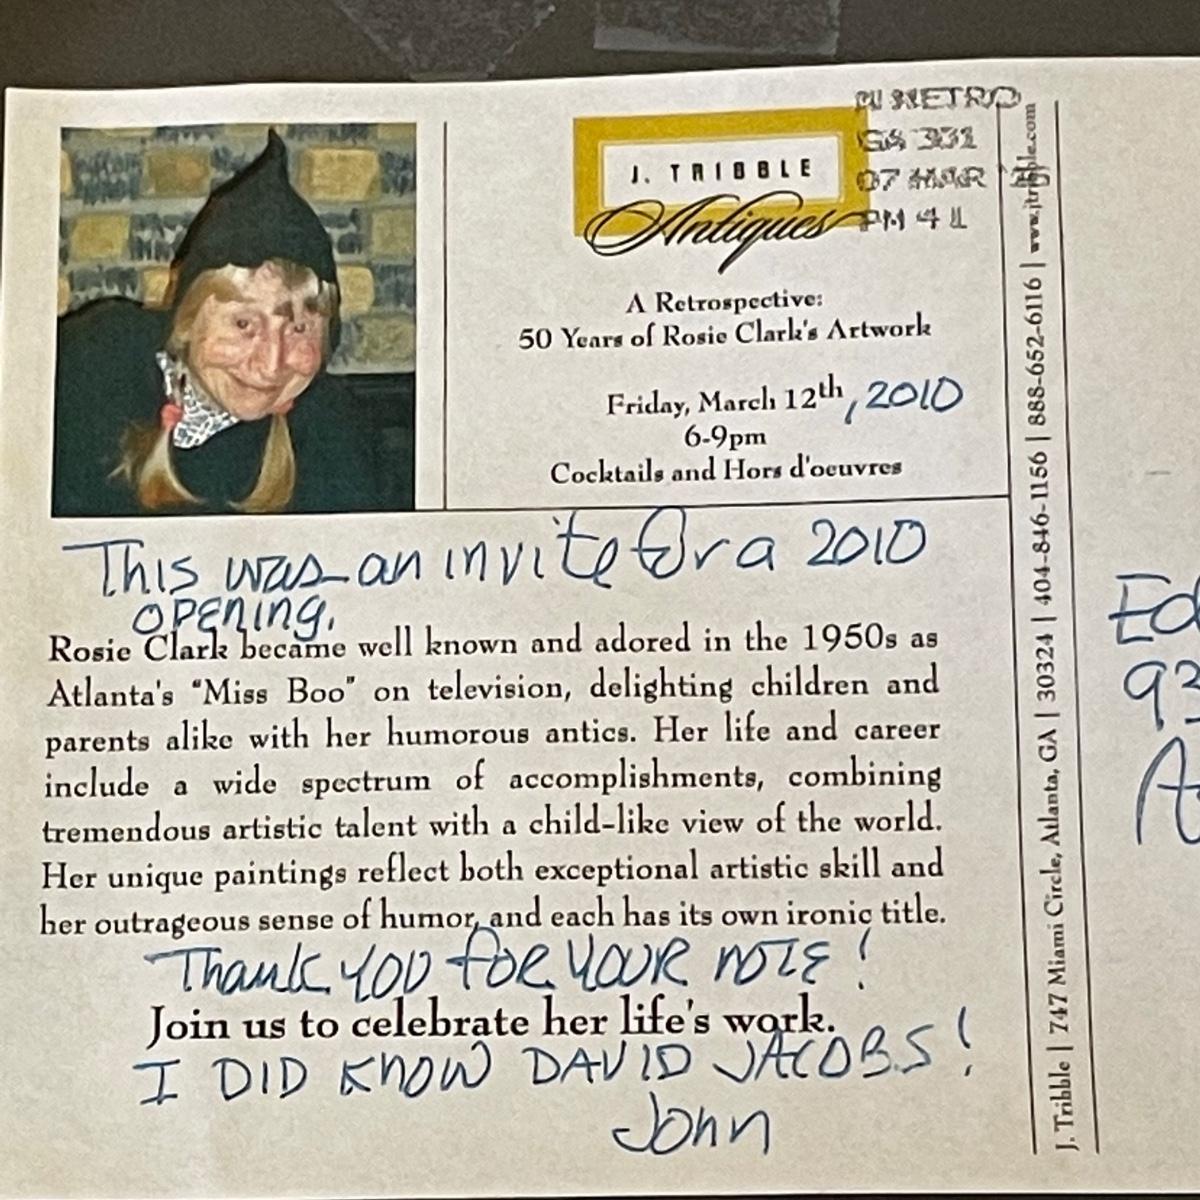 J. TRIBBLE
Antiques
N METRO
GA 331
07 MAR
PM 4 L
A Retrospective:
50 Years of Rosie Clark's Artwork
Friday, March 12th, 2010
6-9pm
Cocktails and Hors d'oeuvres
This was an invite for a 2010
opening.
Rosie Clark became well known and adored in the 1950s as
Atlanta's "Miss Boo" on television, delighting children and
parents alike with her humorous antics. Her life and career
include a wide spectrum of accomplishments, combining
tremendous artistic talent with a child-like view of the world.
Her unique paintings reflect both exceptional artistic skill and
her outrageous sense of humor, and each has its own ironic title.
Thank YOU for YOUR NOTE!
Join us to celebrate her life's work.
I DID KNOW DAVID JACOBS!
John
J. Tribble | 747 Miami Circle, Atlanta, GA | 30324 | 404-846-1156 | 888-652-6116 | www.jtribble.com
Ed
93